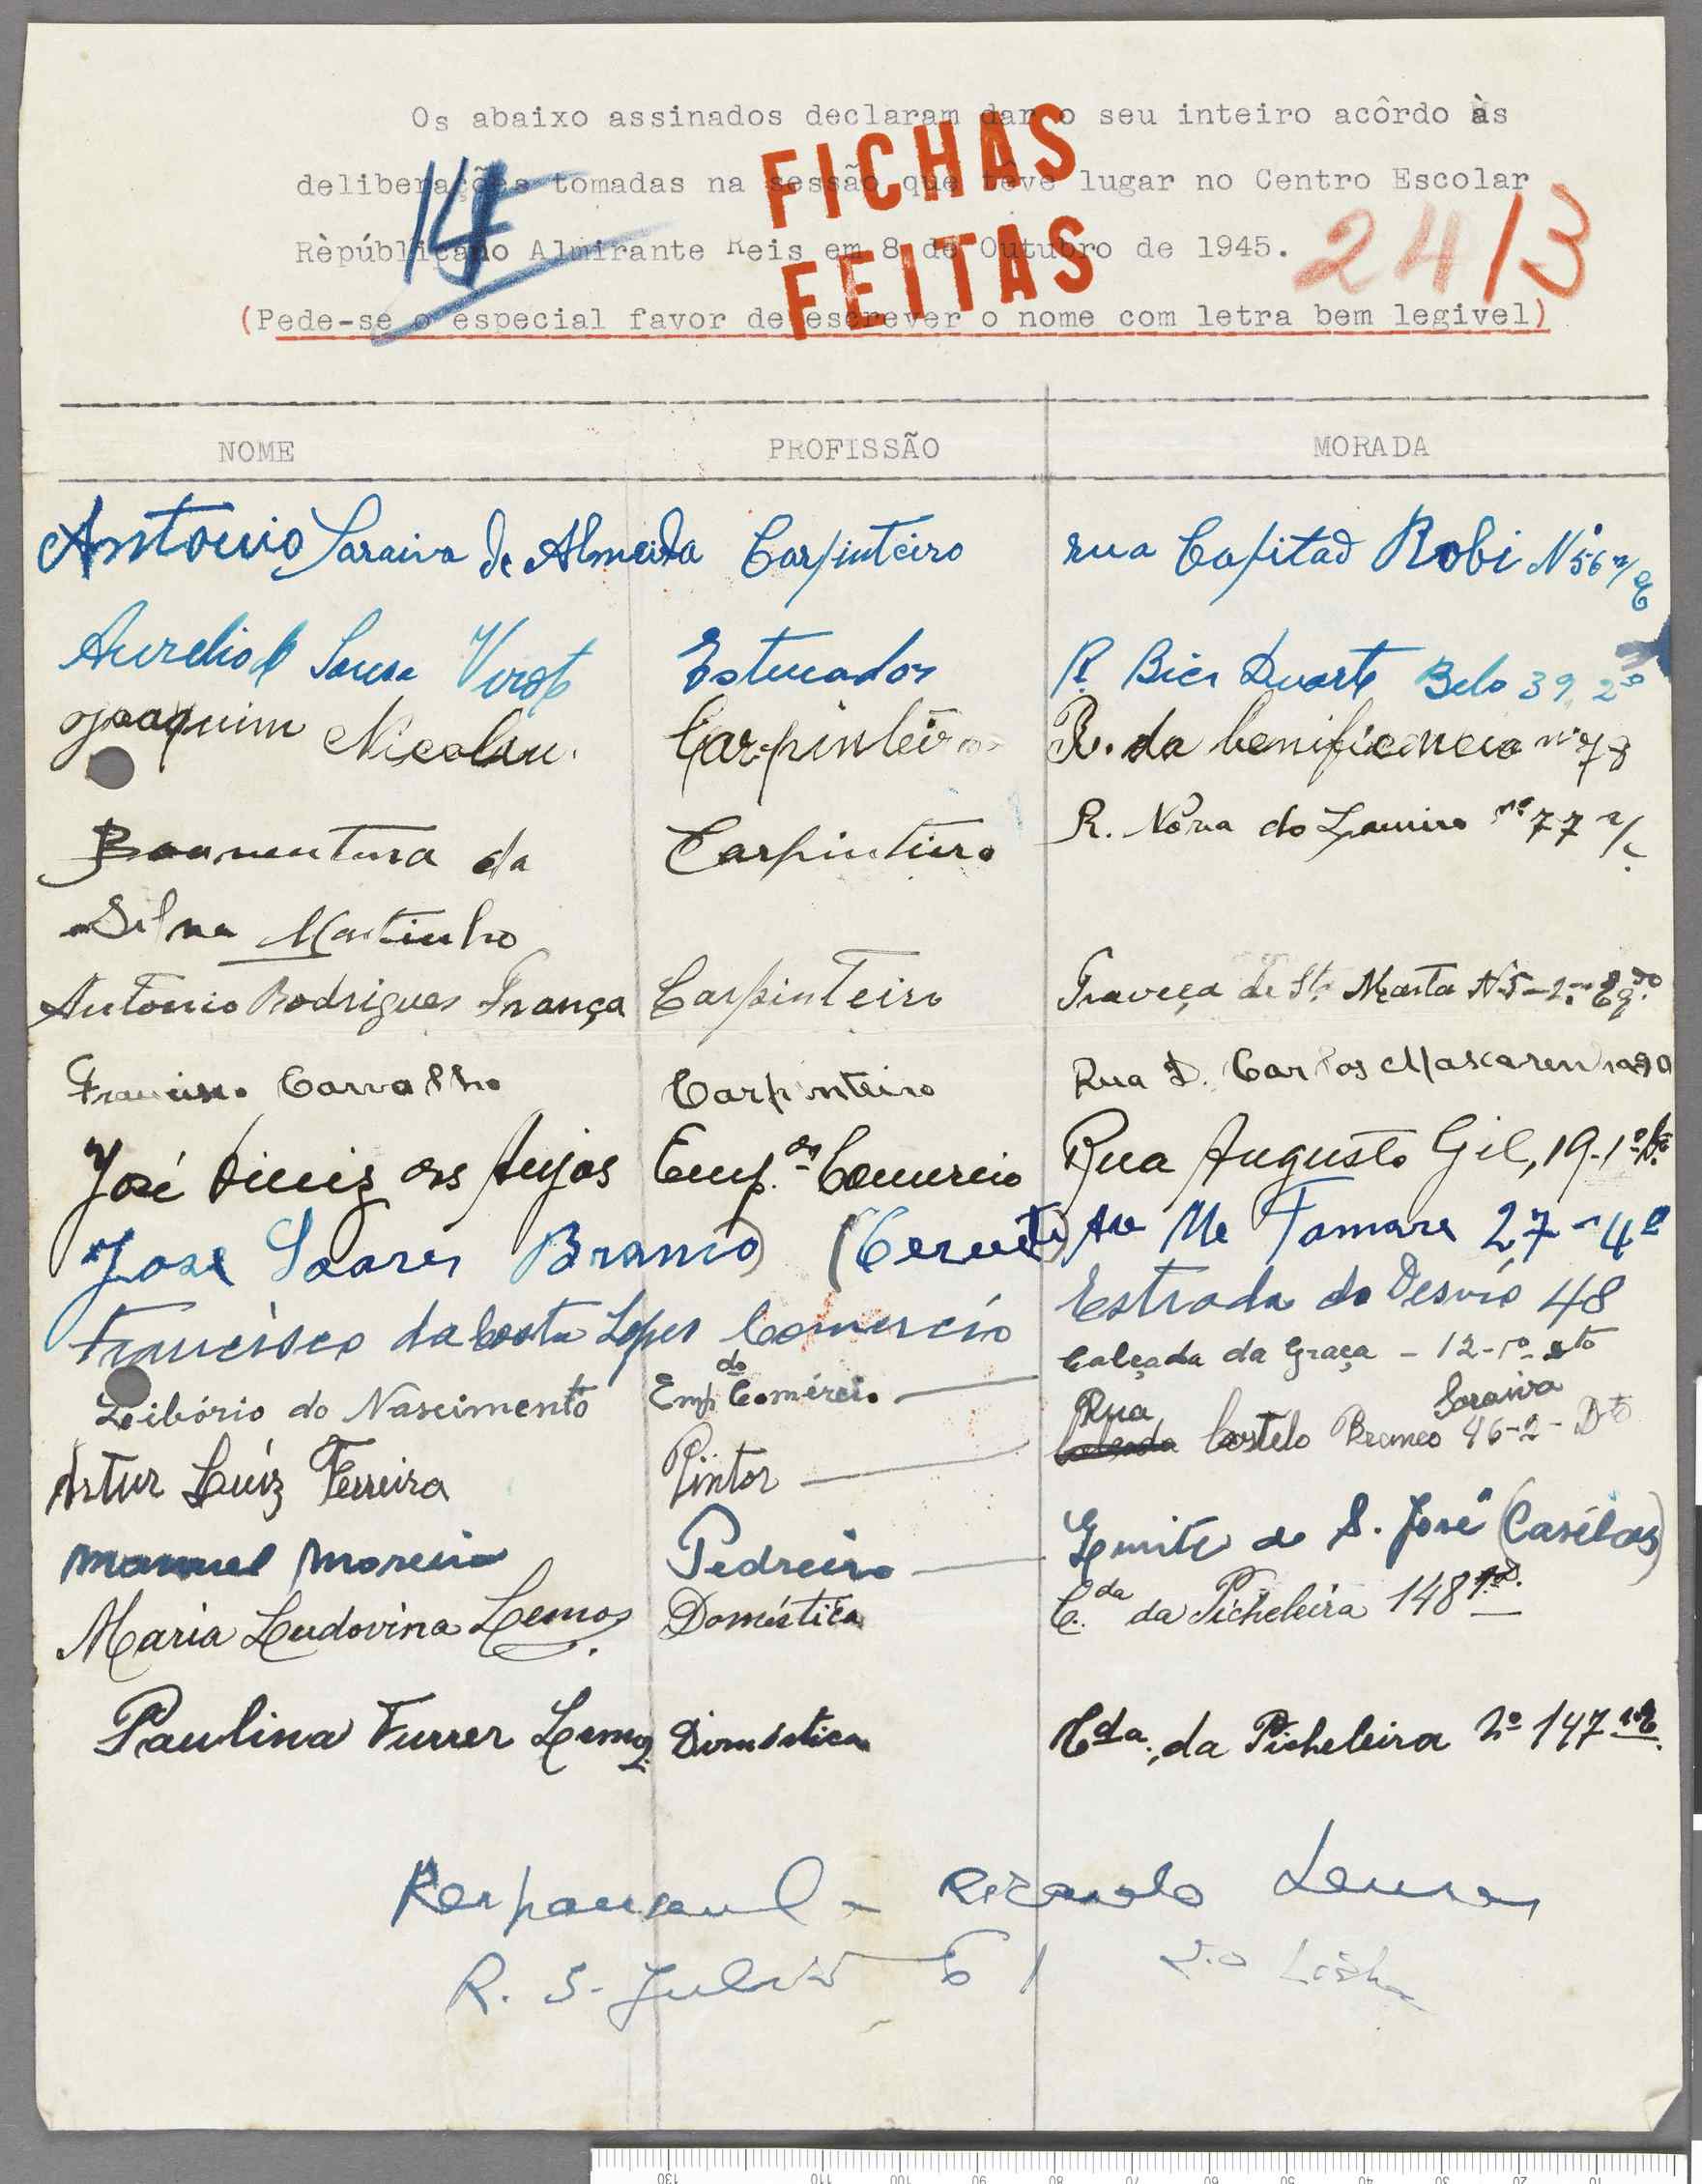 Os abaixo assinados declaram dar o seu inteiro acôrdo às
deliberações tomadas na sessão que têve lugar no Centro Escolar
Rèpúblicano Almirante Reis em 8 de Outubro de 1945.
(Pede-se o especial favor de escrever o nome com letra bem legivel)
FICHAS
FEITAS
14
2413
NOME PROFISSÃO MORADA
Antonio Saraiva de Almeida Carpinteiro rua Capitað Robi Nº 56 r/c
Aurelio Sousa Estucador R. Bica Duarte Belo 39, 2º
Joaquim Nicolau. Carpinteiro R. da benificencia nº 78
Boaventura da Carpinteiro R. Nova do nº 77 r/c
Silva Martinho
Antonio Rodrigues França Carpinteiro Traveça de Stª Marta Nº5-2º Eqdo
Francisco Carvalho Carpinteiro Rua D. Carlos Mascarenhas
José Diniz dos Anjos Emp. do Comercio Rua Augusto Gil, 19-1º
José Soares Branco Av Me Tomare 27-4º
Francisco da Costa Lopes Comercío Estrada do Desvio 48
Libório do Nascimento Emp. do Comércio Calçada da Graça - 12-1º
Artur Luíz Ferreira Pintor Rua Castelo Branco Saraiva 46-2-Dtº
Manuel Moreira Pedreiro de S. José (Casélas)
Maria Ludovina Lemos Doméstica C.da da Picheleira 148
Paulina Furrer Lemos Doméstica Cda. da Picheleira 2º 147
Responsavel - Ricardo Lemos
R. S. Julião 61 2.º Lisboa
130 110 100 90 80 70 60 50 40 30 20 10